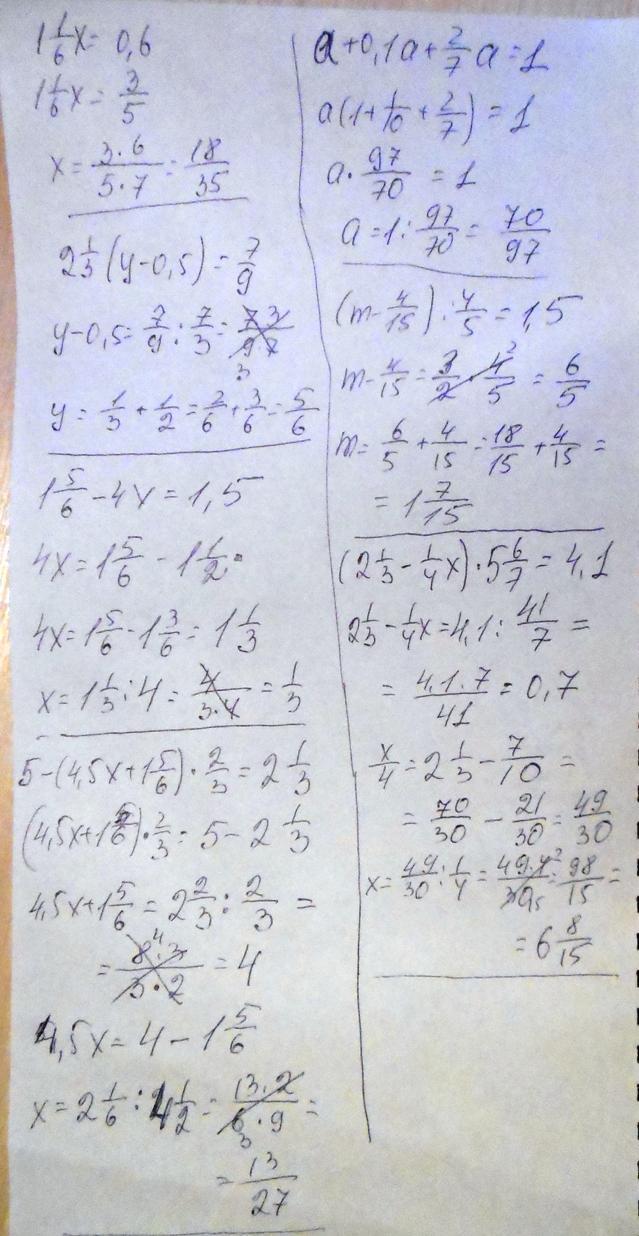 1 1/6 x = 0,6
1 1/6 x = 3/5
x = 3·6/5·7 = 18/35
2 1/3 (y-0,5) = 7/9
y-0,5 = 7/9 : 7/3 = 7·3/9·7 3
y = 1/3 + 1/2 = 2/6 + 3/6 = 5/6
1 5/6 - 4x = 1,5
4x = 1 5/6 - 1 1/2
4x = 1 5/6 - 1 3/6 = 1 1/3
x = 1 1/3 : 4 = 4/3·4 = 1/3
5-(4,5x+1 5/6)·2/3 = 2 1/3
(4,5x+1 5/6)·2/3 = 5-2 1/3
4,5x+1 5/6 = 2 2/3 : 2/3 =
= 8·3/3·2 4 = 4
4,5x = 4 - 1 5/6
x = 2 1/6 : 4 1/2 = 13·2/6·9 3 =
= 13/27
a+0,1a+2/7 a = 1
a(1+1/10+2/7) = 1
a·97/70 = 1
a = 1 : 97/70 = 70/97
(m-4/15) : 4/5 = 1,5
m-4/15 = 3/2 · 4/5 2 = 6/5
m = 6/5 + 4/15 = 18/15 + 4/15 =
= 1 7/15
(2 1/3 - 1/4 x)·5 6/7 = 4,1
2 1/3 - 1/4 x = 4,1 : 41/7 =
= 4,1·7/41 = 0,7
x/4 = 2 1/3 - 7/10 =
= 70/30 - 21/30 = 49/30
x = 49/30 : 1/4 = 49·4/30 2 15 = 98/15 =
= 6 8/15